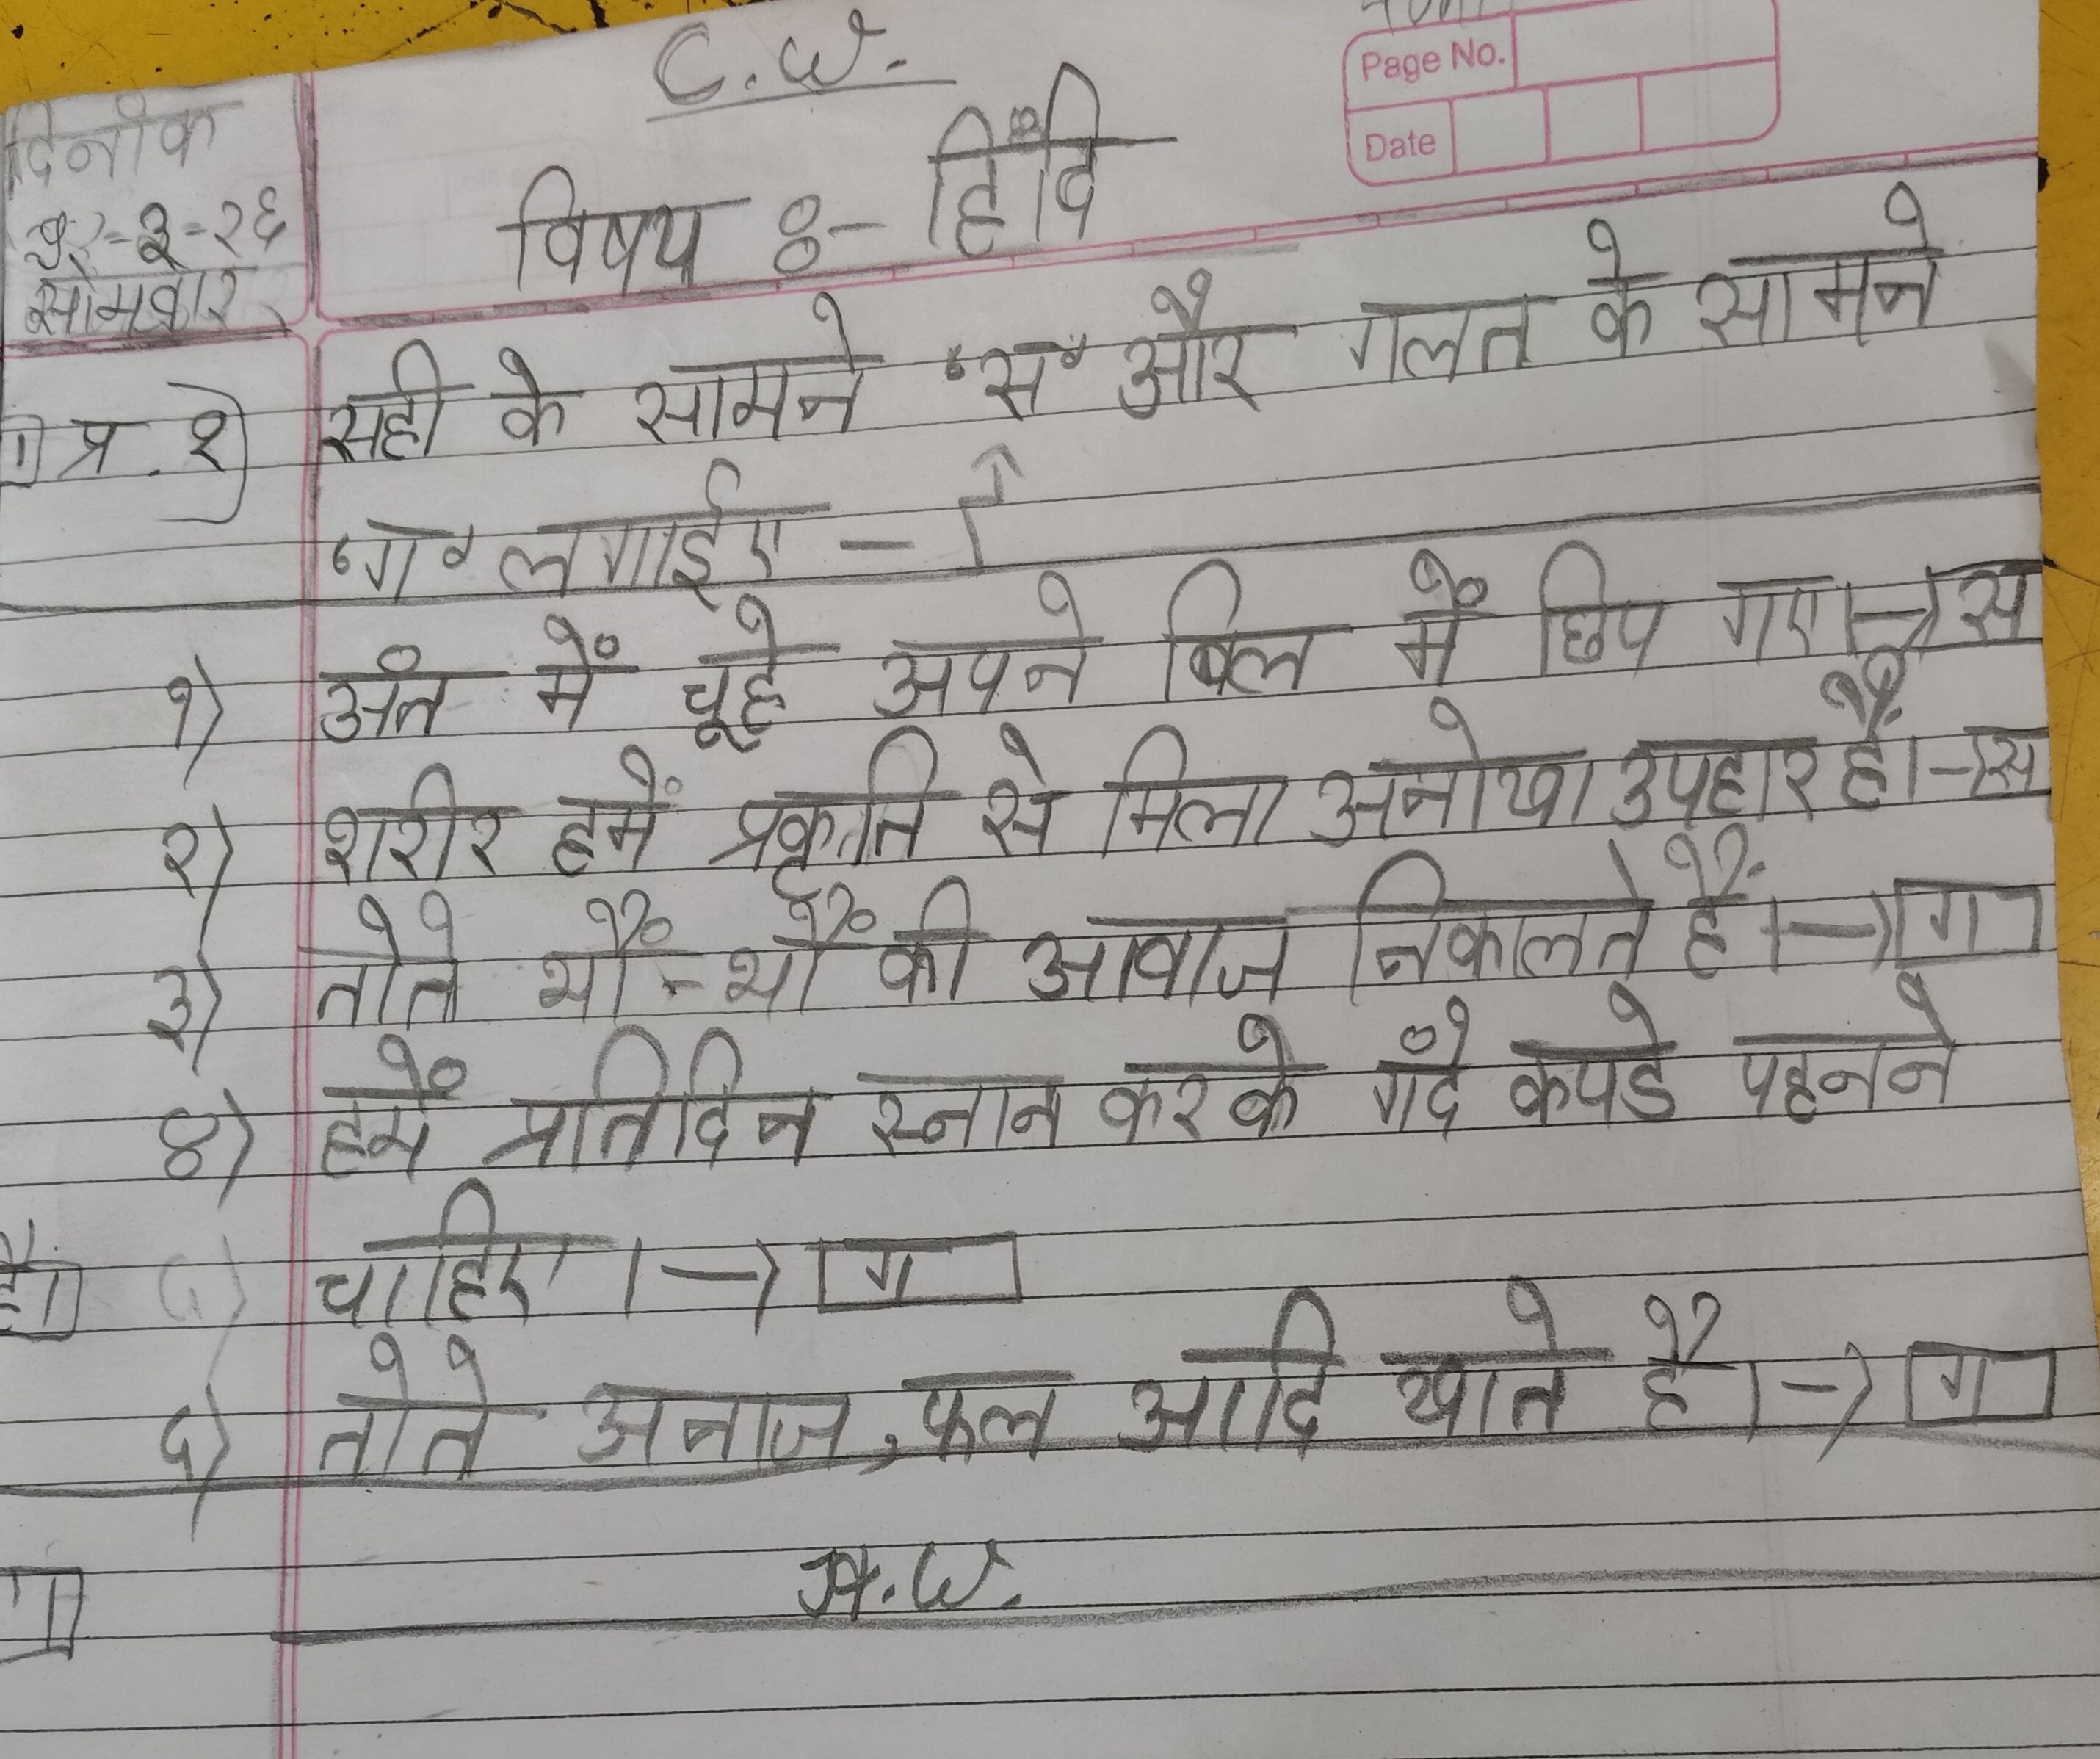 C.W.
Page No.
Date
दिनाँक
सोमवार
विषय :- हिँदि
प्र.१) सही के सामने "स" और गलत के सामने
"ग" लगाईए -
१) अंत में चूहे अपने बिल में छिप गए।→ स
२) शरीर हमें प्रकृति से मिला अनोखा उपहार हैं।→ स
३) तोते भौं-भौं की आवाज निकालते हैं।→ ग
४) हमें प्रतिदिन स्नान करके गंदे कपडे पहनने
चाहिए।→ ग
५) तोते अनाज, फल आदि खाते है।→ ग
H.W.